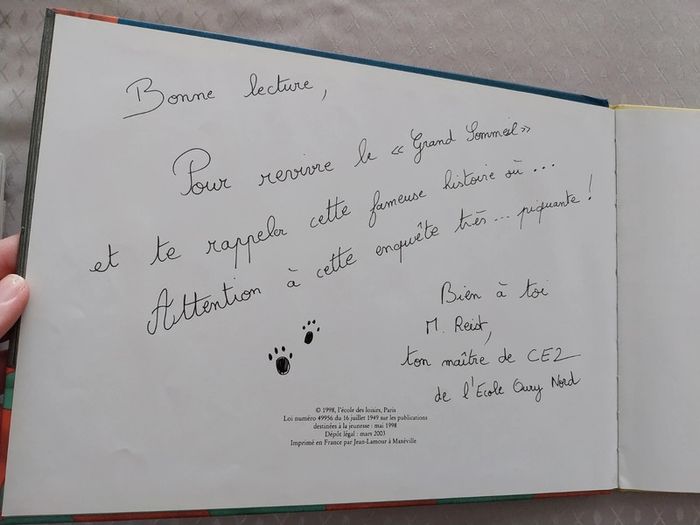 Bonne lecture,
Pour revivre le « Grand Sommeil »
et te rappeler cette fameuse histoire où ...
Attention à cette enquête très ... piquante !
Bien à toi
M. Reist,
ton maître de CE2
de l'Ecole Oury Nord
© 1998, l'école des loisirs, Paris
Loi numéro 49956 du 16 juillet 1949 sur les publications
destinées à la jeunesse : mai 1998
Dépôt légal : mars 2003
Imprimé en France par Jean-Lamour à Maxéville